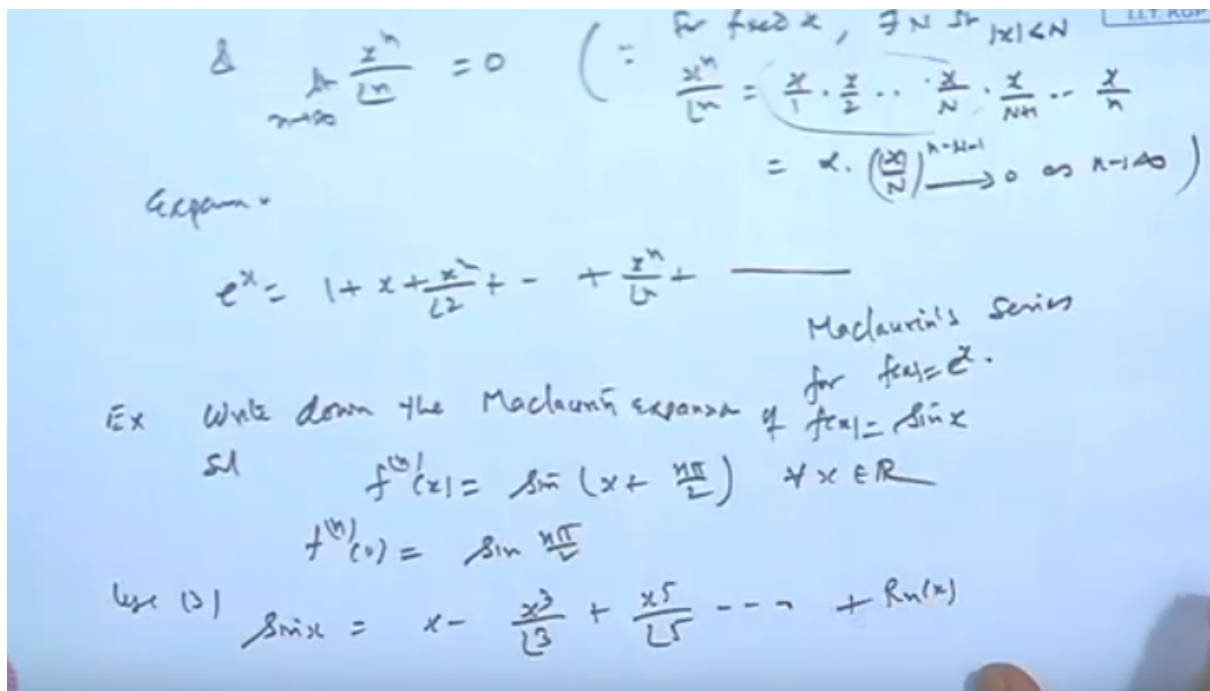 for fixed x, ∃ N st |x|<N
I.I.T. KGP
& lim n→∞ x^n/⌊n = 0 (∵ x^n/⌊n = x/1 · x/2 ·· x/N · x/N+1 -- x/n
= α. (|x|/N)^{n-N-1} → 0 as n→∞)
e^x = 1 + x + x^2/⌊2 + - + x^n/⌊n + ———
Maclaurin's series
for f(x)=e^x.
Ex Write down the Maclaurin expansion of f(x)= sin x
Sol f^(n)(x)= sin (x+ nπ/2) ∀ x ∈ R
f^(n)(0) = sin nπ/2
Use (3) sin x = x - x^3/⌊3 + x^5/⌊5 ---- + Rn(x)